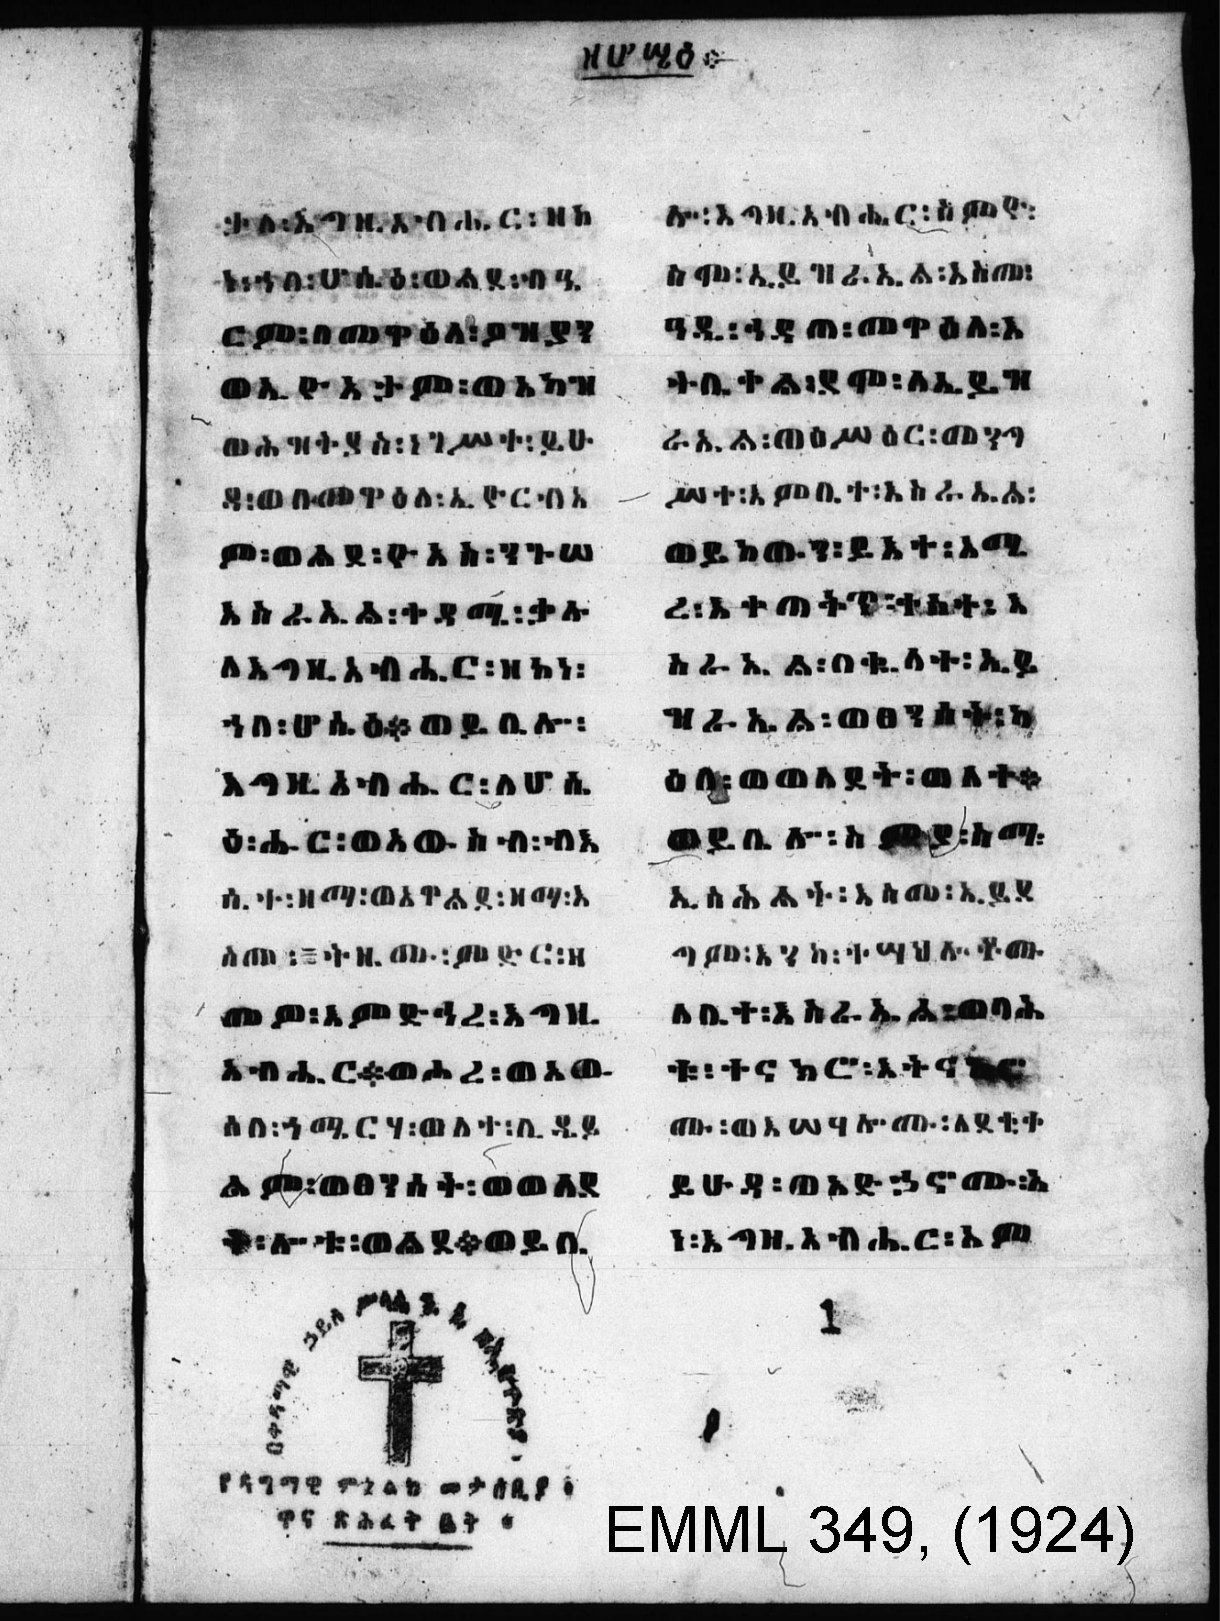 ዘሆሤዕ።
ቃለ፡እግዚአብሔር፡ዘኮ
ነ፡ኀበ፡ሆሴዕ፡ወልደ፡ብዔ
ርም፡በመዋዕለ፡ዖዝያን
ወኢዮአታም፡ወአካዝ
ወሕዝቅያስ፡ነገሥተ፡ይሁ
ዳ፡ወበመዋዕለ፡ኢዮርብአ
ም፡ወልደ፡ዮአስ፡ንጉሠ
እስራኤል፡ቀዳሚ፡ቃሉ
ለእግዚአብሔር፡ዘኮነ፡
ኀበ፡ሆሴዕ። ወይቤሎ፡
እግዚአብሔር፡ለሆሴ
ዕ፡ሑር፡ወአውስብ፡ብእ
ሲተ፡ዘማ፡ወእዋልደ፡ዘማ፡እ
ስመ፡ትዜሙ፡ምድር፡ዘ
መም፡እምድኅረ፡እግዚ
አብሔር።ወሖረ፡ወአው
ሰበ፡ጎሜርሃ፡ወለተ፡ቤዴይ
ልም፡ወፀንሰት፡ወወለደ
ት፡ሎቱ፡ወልደ።ወይቤ
ሎ፡እግዚአብሔር፡ስምዮ፡
ስሞ፡ኢይዝራኤል፡እስመ፡
ዓዲ፡ኅዳጠ፡መዋዕለ፡እ
ትቤቀል፡ደሞ፡ለኢይዝ
ራኤል፡ወዕሥዕር፡መንግ
ሥተ፡እምቤተ፡እስራኤል፡
ወይከውን፡ይእተ፡አሚ
ረ፡እቀጠቅጥ፡ቀስተ፡እ
ስራኤል፡በቈላተ፡ኢይ
ዝራኤል፡ወፀንሰት፡ካ
ዕበ፡ወወለደት፡ወለተ።
ወይቤሎ፡ስምያ፡ስማ፡
ኢስሕልት፡እስመ፡ኢይደ
ግም፡እንከ፡ተሣህሎቶሙ
ለቤተ፡እስራኤል፡ወባሕ
ቱ፡ተናክሮ፡እትናከሮ
ሙ፡ወእሠሃሎሙ፡ለደቂቀ
ይሁዳ፡ወአድኃኖሙ፡አ
ነ፡እግዚአብሔር፡አም
1
በቀዳማዊ ኃይለ ሥላሴ
የዳግማዊ ምኒልክ መታሰቢያ
ዋና ጽሕፈት ቤት
EMML 349, (1924)